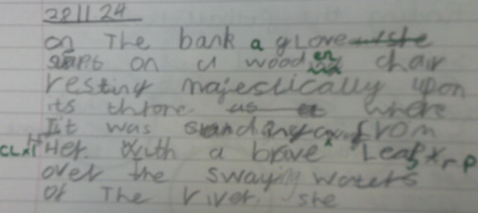 281124
on The bank a glove
on a wooden chair
resting majestically upon
its throne where
It was from
Her. With a brave Leap
over the sway waters
of The river, she